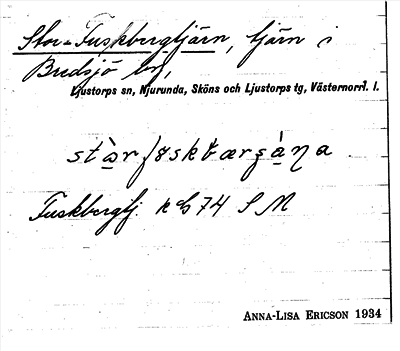 Stor-Fuskbergtjärn, tjärn i
Bredsjö by,
Ljustorps sn, Njurunda, Sköns och Ljustorps tg, Västernorrl. l.
Fuskbergtj. k bl 74 S M
ANNA-LISA ERICSON 1934